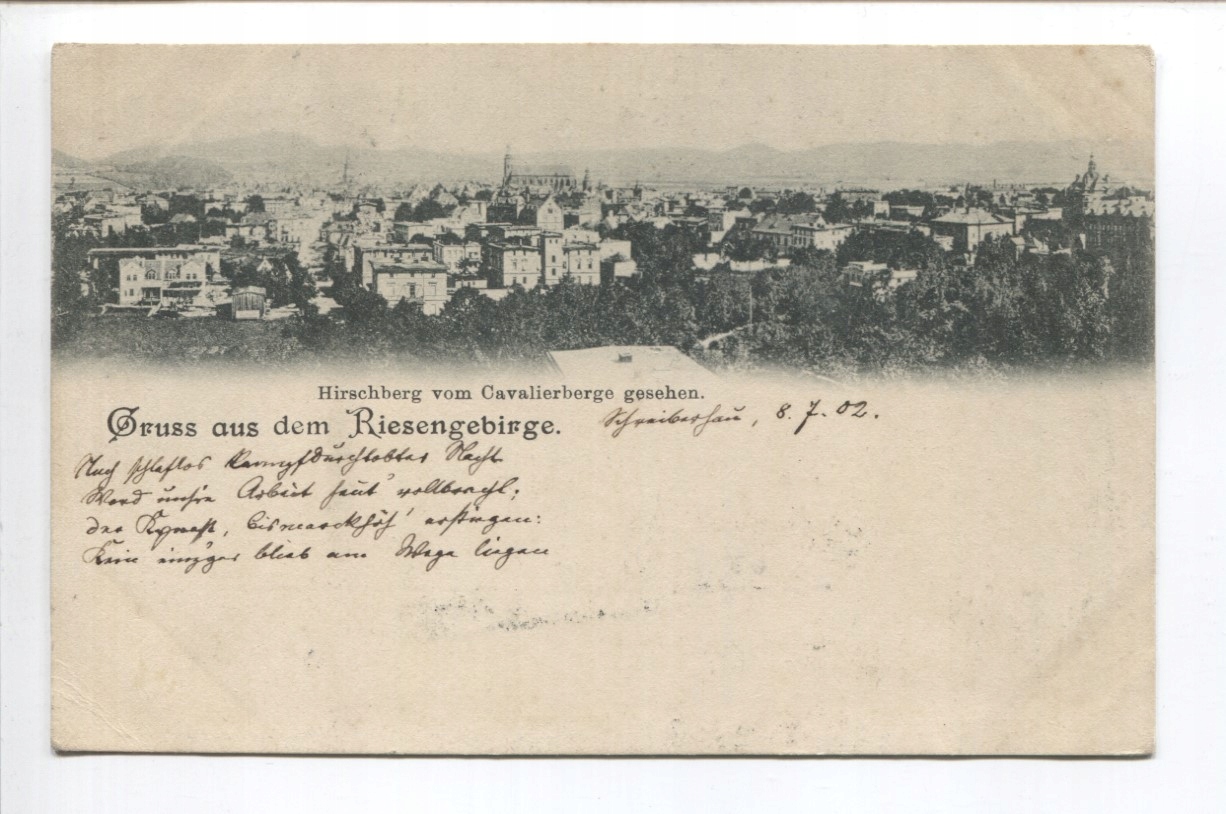 Hirschberg vom Cavalierberge gesehen.
Gruss aus dem Riesengebirge.
Schreiberhau, 8.7.02.
Nach schlaflos kampfdurchtobter Nacht
Ward unsre Arbeit heut' vollbracht;
der Kynast, Bismarckhöh' erstiegen:
Kein einz'ger blieb am Wege liegen